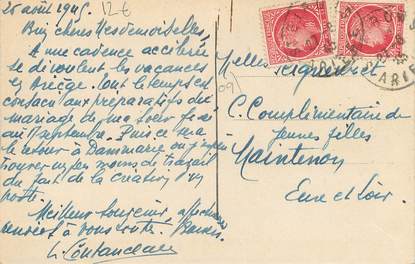 20 août 1945
12€
Bien chères Mesdemoiselles,
A une cadence accélérée
se déroulent les vacances
en Ariège. Tout le temps est
consacré aux préparatifs du
mariage de ma soeur fixé
au 1 septembre. Puis ce sera
le retour à Dammarie où j'espère
trouver un peu moins de travail
du fait de la création d'un
poste.
Meilleur souvenir, affectueux
à vous toute. Baisers.
L. Coutanceau
Melles
C. Complémentaire de
Jeunes filles
Maintenon
Eure et Loir